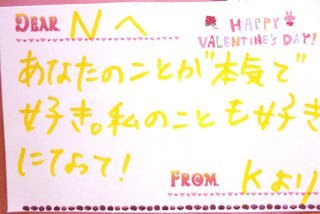 DEAR Nへ
HAPPY
VALENTINE'S DAY!
あなたのことが"本気で"
好き。私のことも好き
になって!
FROM Kより